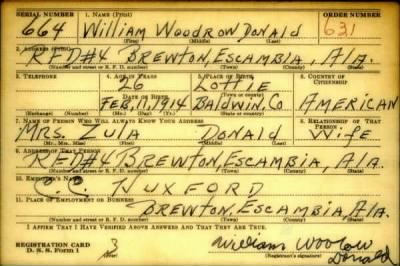 SERIAL NUMBER 1. NAME (Print) ORDER NUMBER
664 William Woodrow Donald 631
(First) (Middle) (Last)
2. ADDRESS (Print)
R.F.D#4 BREWTON, ESCAMBIA, Ala.
(Number and street or R. F. D. number) (Town) (County) (State)
3. TELEPHONE 4. AGE IN YEARS 5. PLACE OF BIRTH 6. COUNTRY OF CITIZENSHIP
26 LOTTIE
DATE OF BIRTH (Town or county)
FEB, 11, 1914 BALDWIN, Co AMERICAN
(Exchange) (Number) (Mo.) (Day) (Yr.) (State or country)
7. NAME OF PERSON WHO WILL ALWAYS KNOW YOUR ADDRESS 8. RELATIONSHIP OF THAT PERSON
MRS. ZULA DONALD WIFE
(Mr., Mrs., Miss) (First) (Middle) (Last)
9. ADDRESS OF THAT PERSON
R.F.D#4 BREWTON, ESCAMBIA, Ala.
(Number and street or R. F. D. number) (Town) (County) (State)
10. EMPLOYER'S NAME
C. C. HUXFORD
11. PLACE OF EMPLOYMENT OR BUSINESS
BREWTON, ESCAMBIA, Ala.
(Number and street or R. F. D. number) (Town) (County) (State)
I AFFIRM THAT I HAVE VERIFIED ABOVE ANSWERS AND THAT THEY ARE TRUE.
REGISTRATION CARD
D. S. S. Form 1
William Woodrow
Donald
(Registrant's signature)